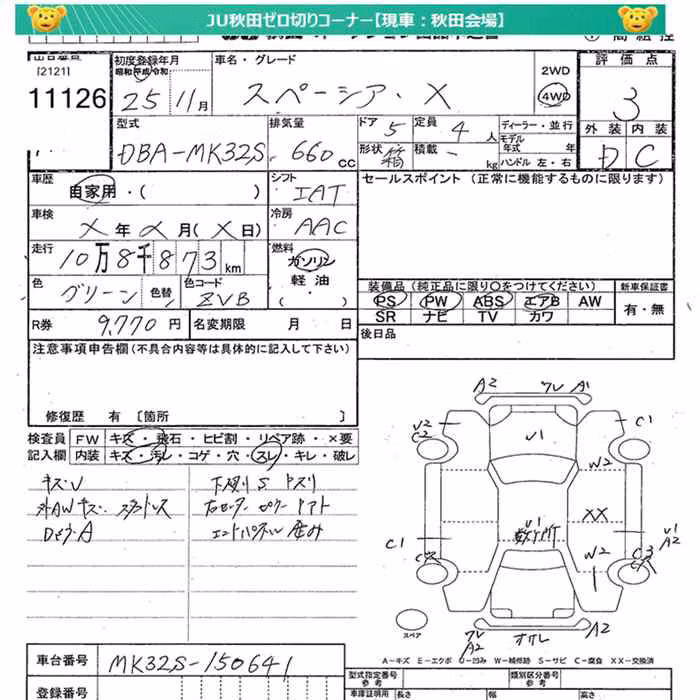 JU秋田ゼロ切りコーナー【現車：秋田会場】
[2121]
11126
初度登録年月
昭和 平成 令和
25 11月
車名・グレード
スペーシア・X
2WD
4WD
評価点
3
外装 内装
D C
型式
DBA-MK32S
排気量
660cc
ドア 5
定員 4人
形状 箱
積載 - kg
ディーラー・並行
モデル
年式 年
ハンドル 左・右
車歴
自家用・( )
シフト
IAT
車検
X年X月(X日)
冷房
AAC
走行
10万8千873km
燃料
ガソリン
軽油
・( )
色
グリーン
色替
色コード
ZVB
R券 9,770円
名変期限 月 日
セールスポイント (正常に機能するものに限ります)
装備品 (純正品に限り○をつけてください)
新車保証書
PS PW ABS エアB AW
SR ナビ TV カワ
有・無
後日品
注意事項申告欄(不具合内容等は具体的に記入して下さい)
修復歴 有 [箇所 ]
検査員
記入欄
FW キズ・飛石・ヒビ割・リペア跡・×要
内装 キズ・汚レ・コゲ・穴・スレ・キレ・破レ
キズU
下廻りS キズリ
A2 ワレ A1
U2
C2
U1
C1
W2
XX
U1
C1
W2
C3
U1
A2
スペア
ワレ
A2
A2
A-キズ E-エクボ U-凹み W-補修跡 S-サビ C-腐食 XX-交換済
車台番号
MK32S-150641
登録番号
型式指定番号
参考
類別区分番号
参考
車庫証明用
長さ 幅 高さ